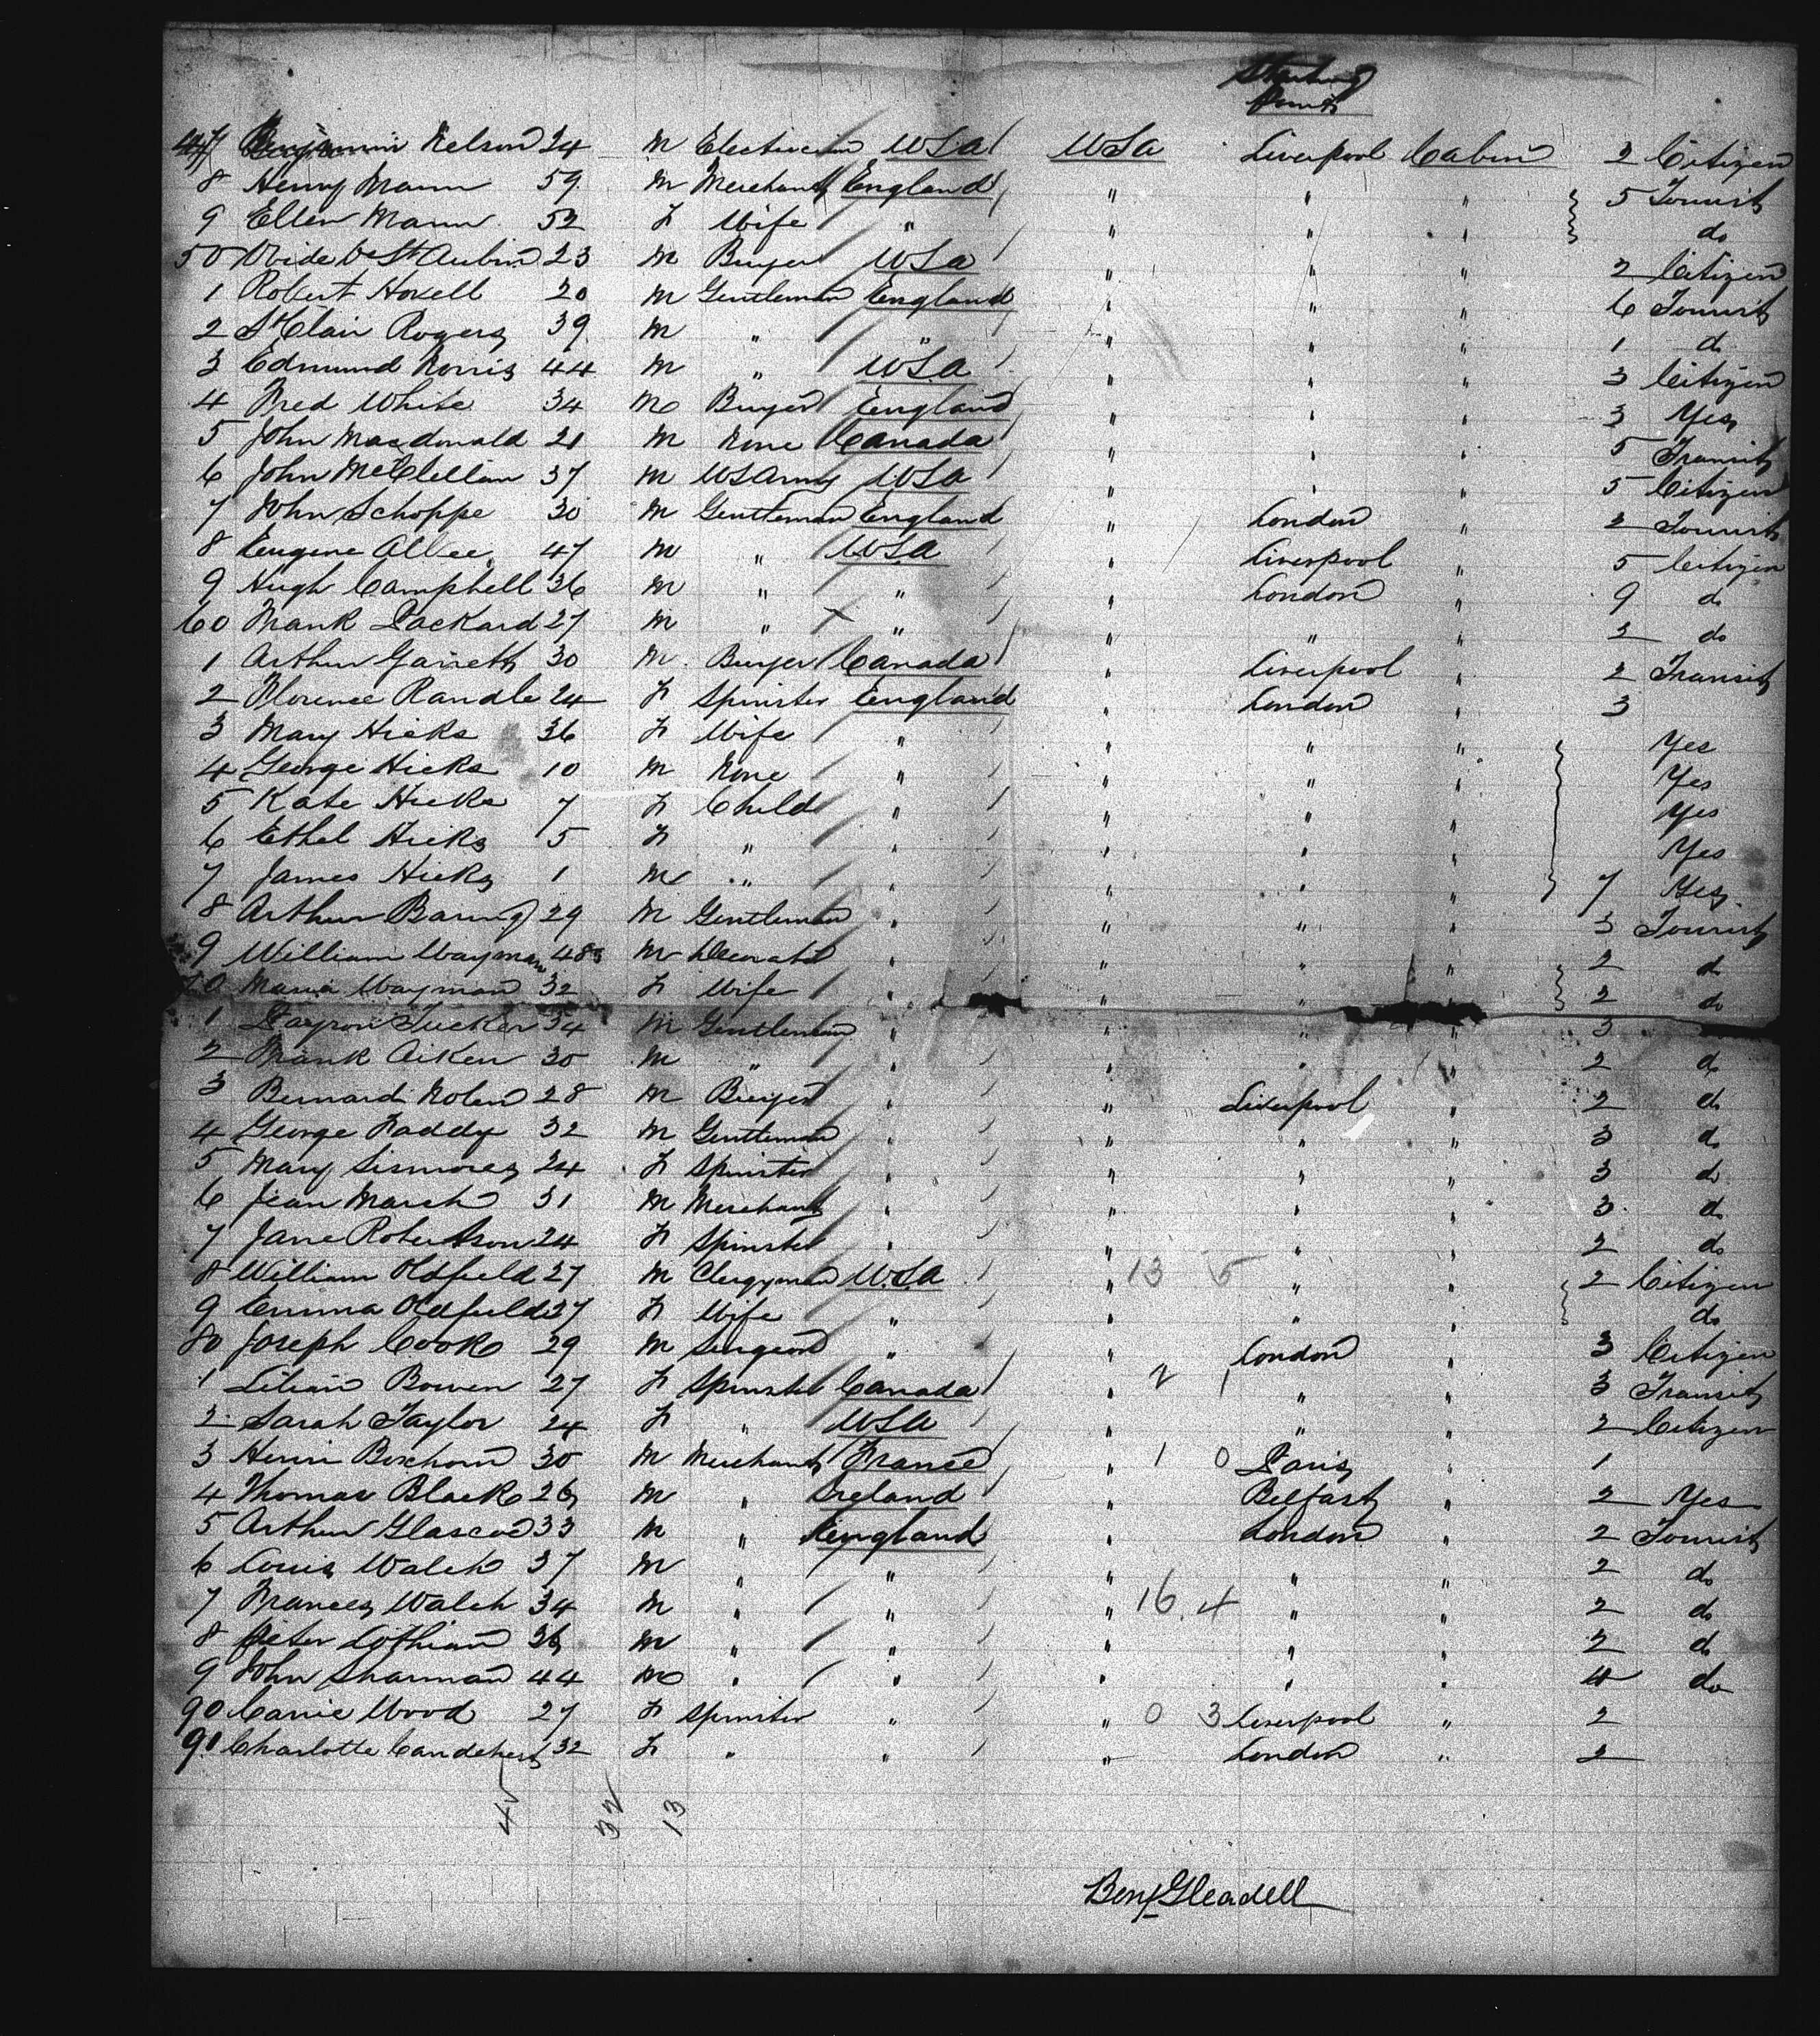 Starting
Point
47 Benjamin Nelson 24 M Electrician USA USA Liverpool Cabin 2 Citizen
8 Henry Mann 59 M Merchant England " " " 5 Tourist
9 Ellen Mann 52 F Wife " " " " do
50 St Aubin 23 M Buyer USA " " " 2 Citizen
1 Robert Hovell 20 M Gentleman England " " " 6 Tourist
2 St Clair Rogers 39 M " " " " " 1 do
3 Edmund Norris 44 M " USA " " " 3 Citizen
4 Fred White 34 M Buyer England " " " 3 Yes
5 John Macdonald 21 M None Canada " " " 5 Transit
6 John McClellan 37 M US Army USA " " " 5 Citizen
7 John Schoppe 30 M Gentleman England " London " 2 Tourist
8 Eugene Allee 47 M " USA " Liverpool " 5 Citizen
9 Hugh Campbell 36 M " " " London " 9 do
60 Frank Packard 27 M " " " " " 2 do
1 Arthur Garrett 30 M Buyer Canada " Liverpool " 2 Transit
2 Florence Randle 24 F Spinster England " London " 3
3 Mary Hicks 36 F Wife " " " " Yes
4 George Hicks 10 M None " " " " Yes
5 Kate Hicks 7 F Child " " " " Yes
6 Ethel Hicks 5 F " " " " " Yes
7 James Hicks 1 M " " " " " 7 Yes
8 Arthur Baring 29 M Gentleman " " " " 3 Tourist
9 William Wayman 48 M Decorator " " " " 2 do
70 Maria Wayman 32 F Wife " " " " 2 do
1 Tucker 34 M Gentleman " " " " 3
2 Frank Aiken 30 M " " " " " 2 do
3 Bernard Nolen 28 M Buyer " " Liverpool " 2 do
4 George Faddy 32 M Gentleman " " " " 3 do
5 Mary Sismores 24 F Spinster " " " " 3 do
6 Jean March 31 M Merchant " " " " 3 do
7 Jane Robertson 24 F Spinster " " " " 2 do
8 William Oldfield 27 M Clergyman USA " 13 5 " " 2 Citizen
9 Emma Oldfield 27 F Wife " " " " do
80 Joseph Cook 29 M Surgeon " " London " 3 Citizen
1 Lilian Bowen 27 F Spinster Canada " 2 1 " " 3 Transit
2 Sarah Taylor 24 F " USA " " " 2 Citizen
3 Henri Boxhorn 30 M Merchant France " 1 0 Paris " 1
4 Thomas Black 26 M " Ireland " Belfast " 2 Yes
5 Arthur Glascoe 33 M " England " London " 2 Tourist
6 Louis Walch 37 M " " " " " 2 do
7 Frances Walch 34 M " " " 16 4 " " 2 do
8 Peter Lothian 36 M " " " " " 2 do
9 John Sharman 44 M " " " " " 4 do
90 Carrie Wood 27 F Spinster " " 0 3 Liverpool " 2
91 Charlotte 32 F " " " London " 2
32 13
Benj Gleadell